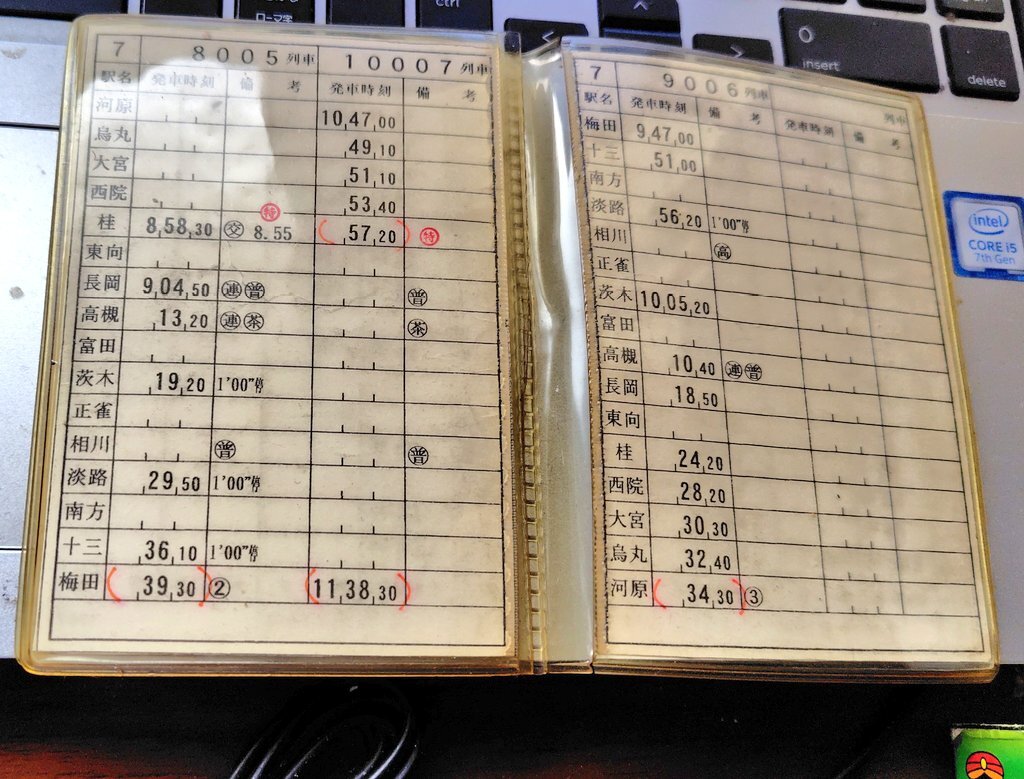 ローマ字
ctrl
0
insert
delete
intel
CORE i5
7th Gen
7 8005列車 10007列車
駅名 発車時刻 備考 発車時刻 備考
河原 10,47,00
烏丸 ,49,10
大宮 ,51,10
西院 ,53,40
特
桂 8,58,30 交 8.55 (,57,20) 特
東向
長岡 9,04,50 連 普 普
高槻 ,13,20 連 茶 茶
富田
茨木 ,19,20 1'00"停
正雀
相川 普 普
淡路 ,29,50 1'00"停
南方
十三 ,36,10 1'00"停
梅田 (,39,30) ② (11,38,30)
7 9006列車 列車
駅名 発車時刻 備考 発車時刻 備考
梅田 9,47,00
十三 ,51,00
南方
淡路 ,56,20 1'00"停
相川 高
正雀
茨木 10,05,20
富田
高槻 ,10,40 連 普
長岡 ,18,50
東向
桂 ,24,20
西院 ,28,20
大宮 ,30,30
烏丸 ,32,40
河原 (,34,30) ③